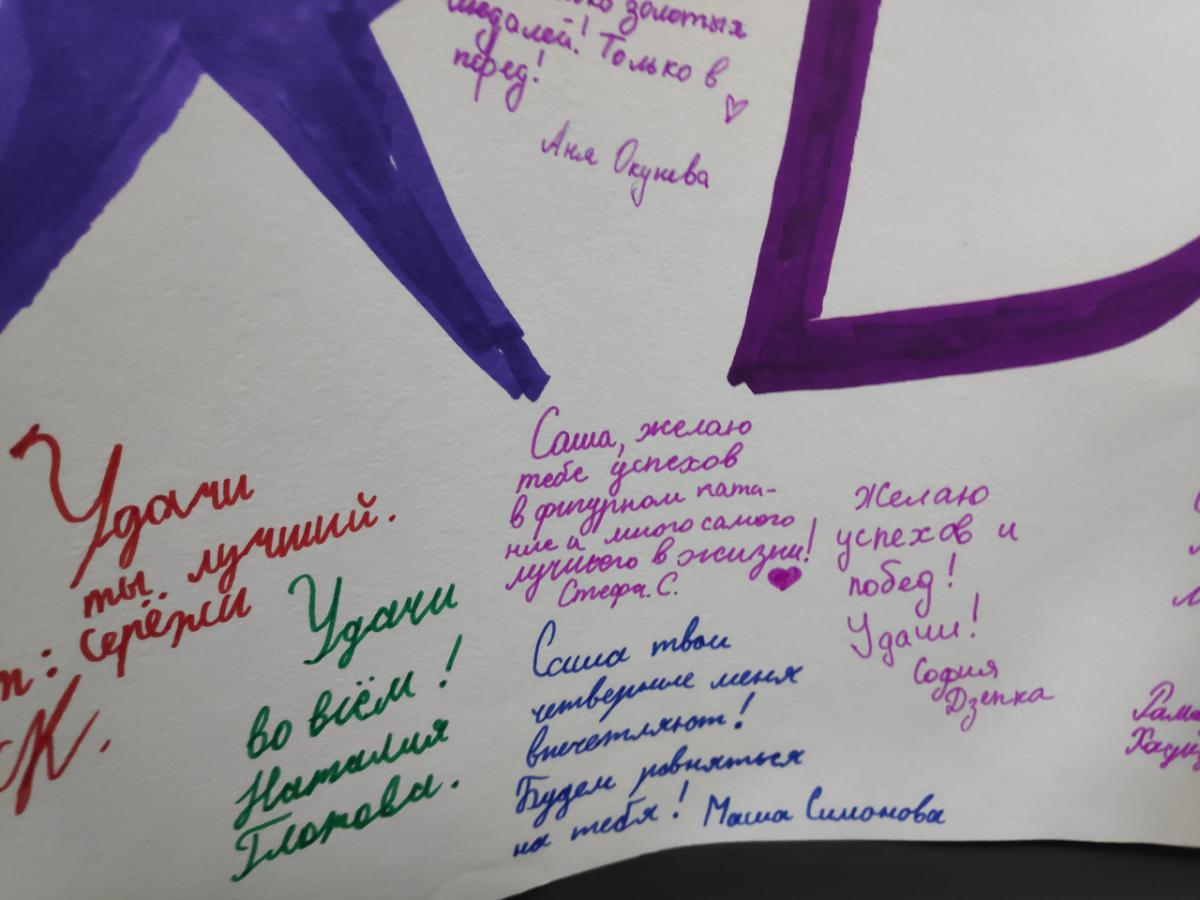 золотых
медалей! Только в
перёд!
Аня Окунева
Удачи
ты лучший.
т: Серёжи
К.
Удачи
во всём!
Наталия
Саша, желаю
тебе успехов
в фигурном ката-
ние и много самого
лучшего в жизни!
Стефа. С.
Саша твои
четверные меня
впечетляют!
Будем ровняться
на тебя! Маша Симонова
Желаю
успехов и
побед!
Удачи!
София
Дзепка